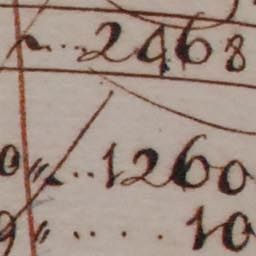 ~...2468
0 „ ~...1260
9 „ .....10